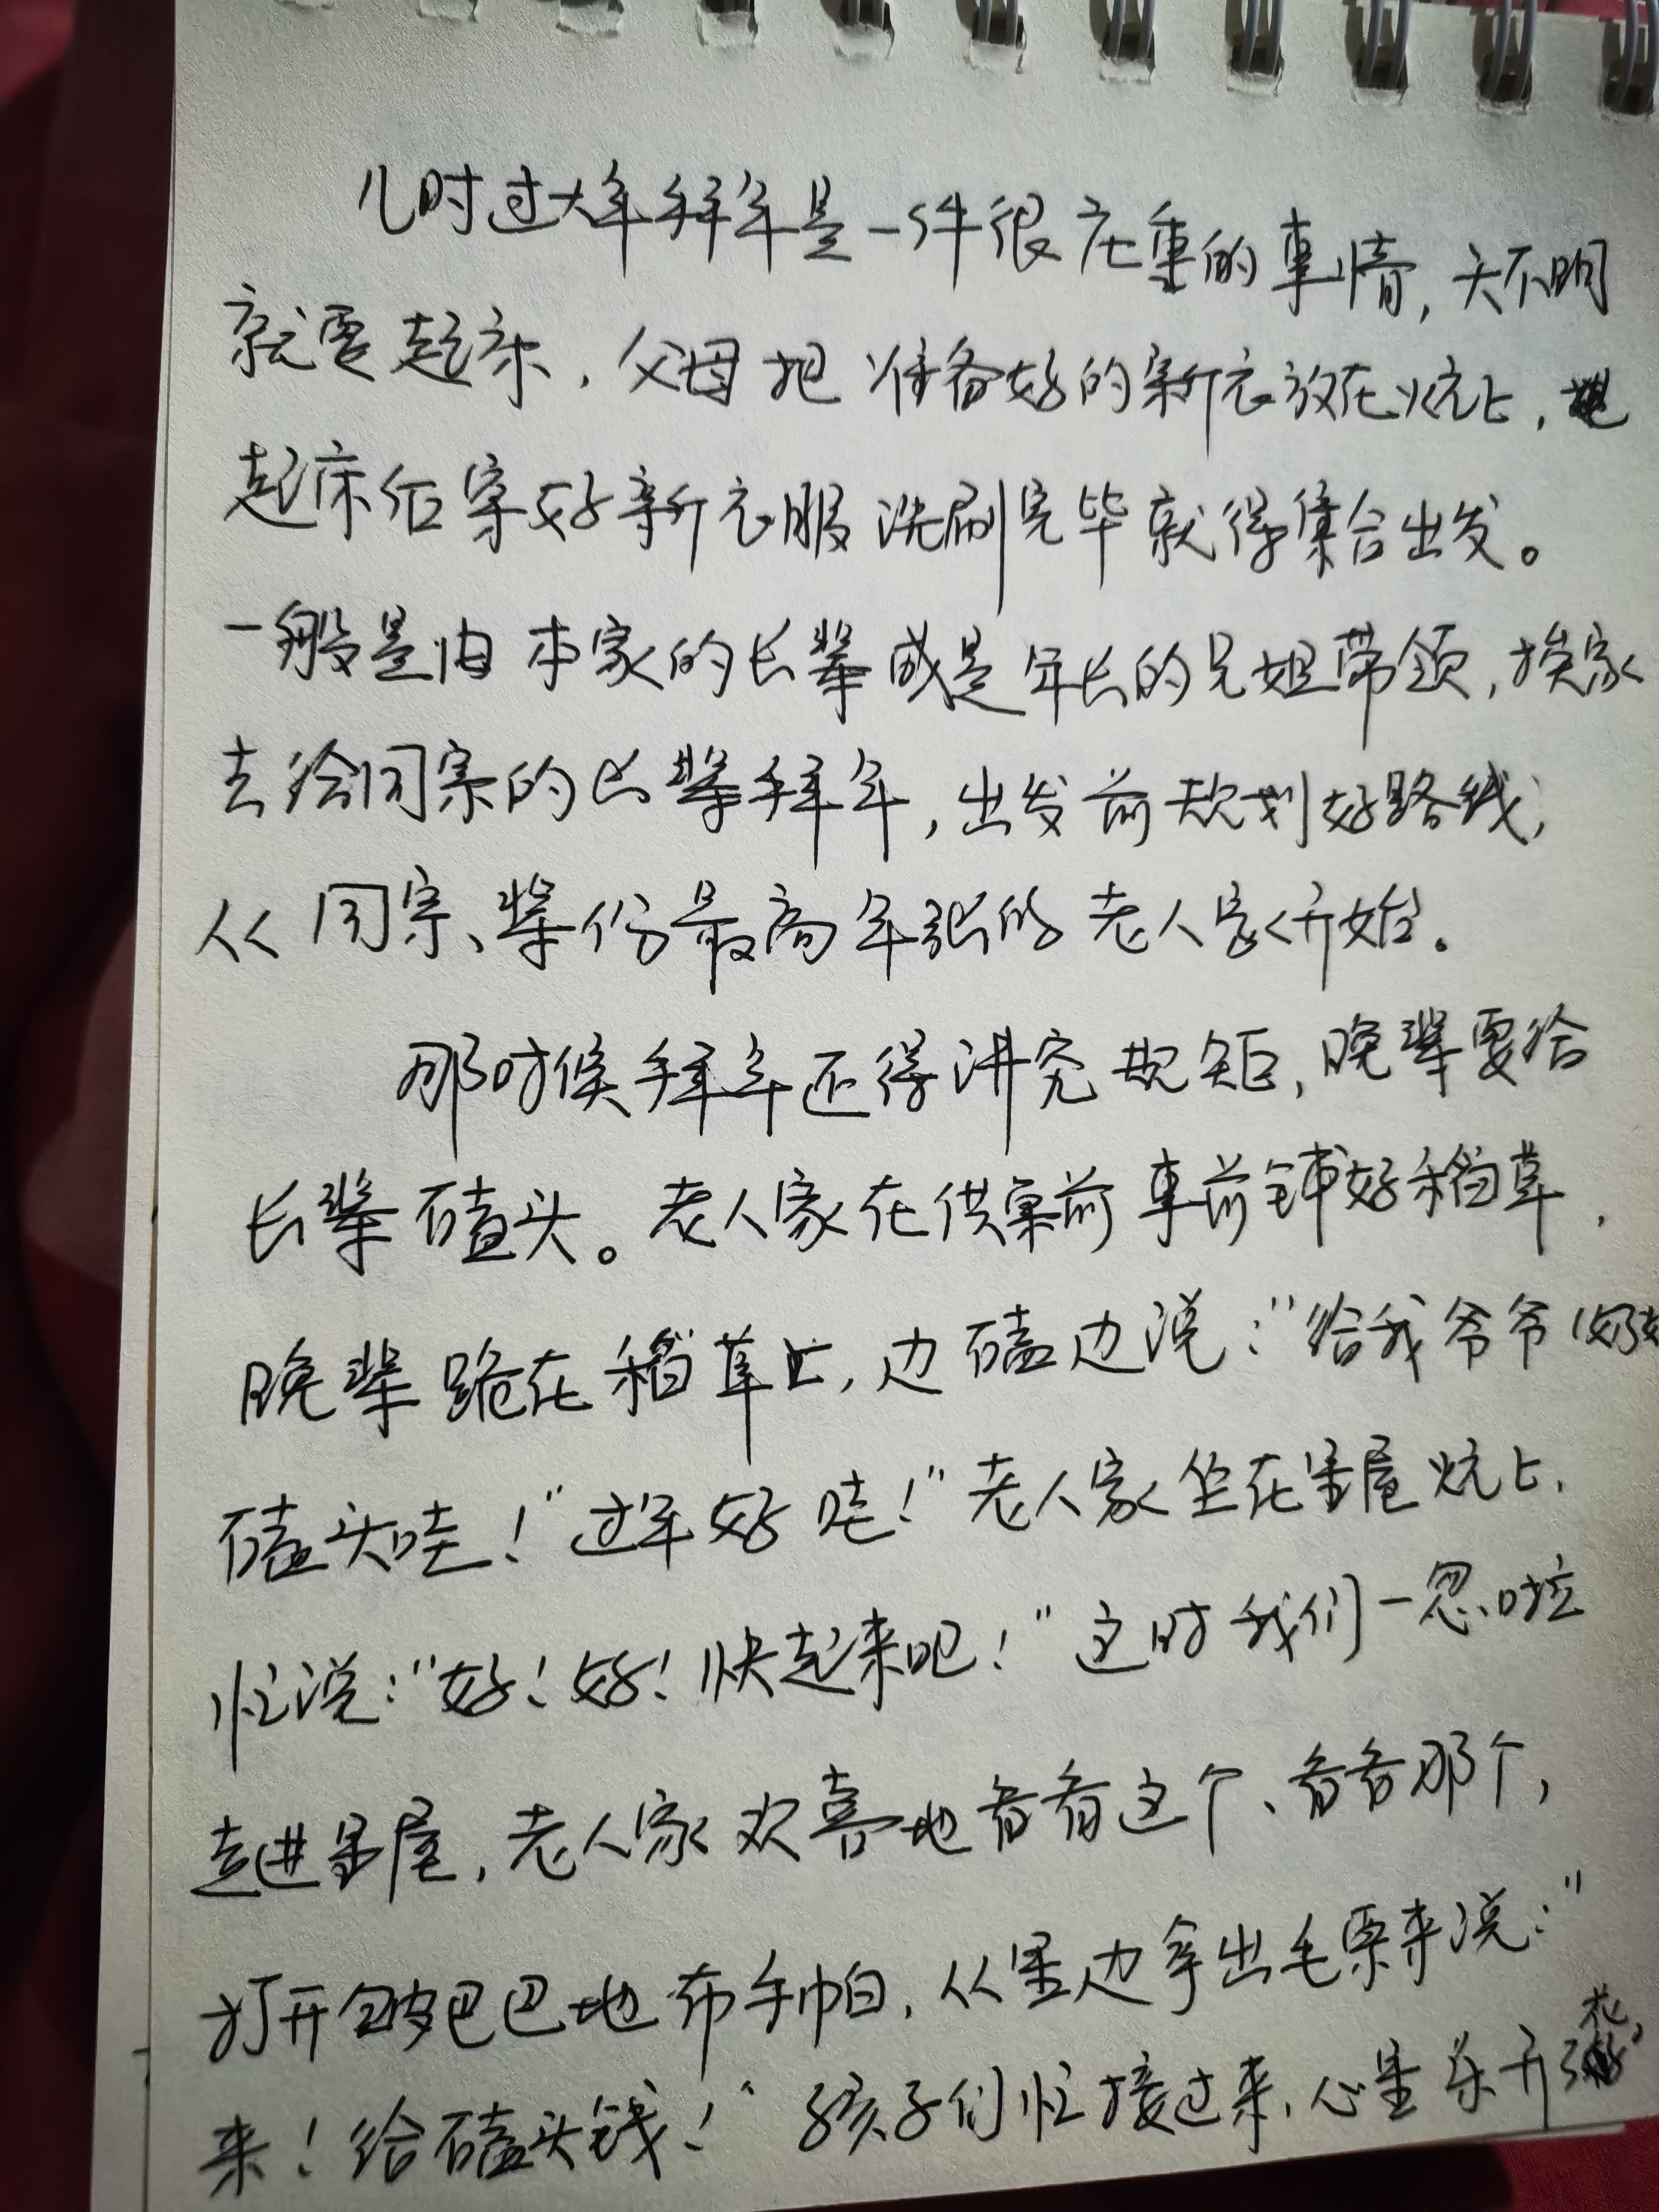 儿时过大年拜年是一件很庄重的事情,天不明
就要起床,父母把准备好的新衣放在炕上,
起床后穿好新衣服洗刷完毕就得集合出发。
一般是由本家的长辈或是年长的兄姐带领,挨家
去给同宗的长辈拜年,出发前规划好路线,
从同宗、辈份最高年龄的老人家开始。
那时候拜年还得讲究规矩,晚辈要给
长辈磕头。老人家在供桌前事前铺好稻草,
晚辈跪在稻草上,边磕边说:"给我爷爷(奶奶
磕头哇!"过年好哇!"老人家坐在里屋炕上,
忙说:"好!好!快起来吧!"这时我们一忽啦
走进里屋,老人家欢喜地看看这个、看看那个,
打开皱巴巴地布手帕,从里边拿出毛票来说:"
来!给磕头钱!"孩子们忙接过来,心里乐开花,